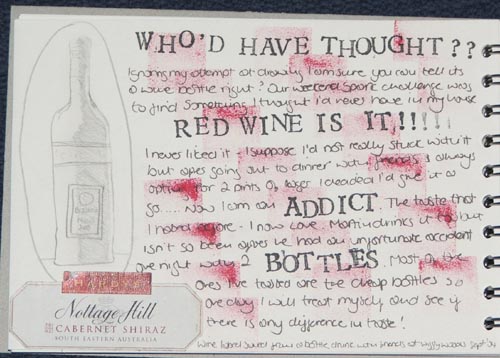 WHO'D HAVE THOUGHT??
Ignoring my attempt at drawing I am sure you can tell its
a wine bottle right? Our weekend challenge was
to find something I thought I'd never have in my house
RED WINE IS IT!!!!!!
I never liked it - I suppose I'd not really stuck with it
but after going out to dinner with friends & always
opting for 2 pints of lager I decided I'd give it a
go..... Now I am an ADDICT. The taste that
I hated before - I now love. Martin drinks it too but
isn't so keen after he had an unfortunate accident
one night with 2 BOTTLES. Most of the
ones I've tasted are the cheap bottles so
one day I will treat myself and see if
there is any difference in taste!
Nottage Hill
CABERNET SHIRAZ
SOUTH EASTERN AUSTRALIA
Wine label saved from a bottle drunk with friends at